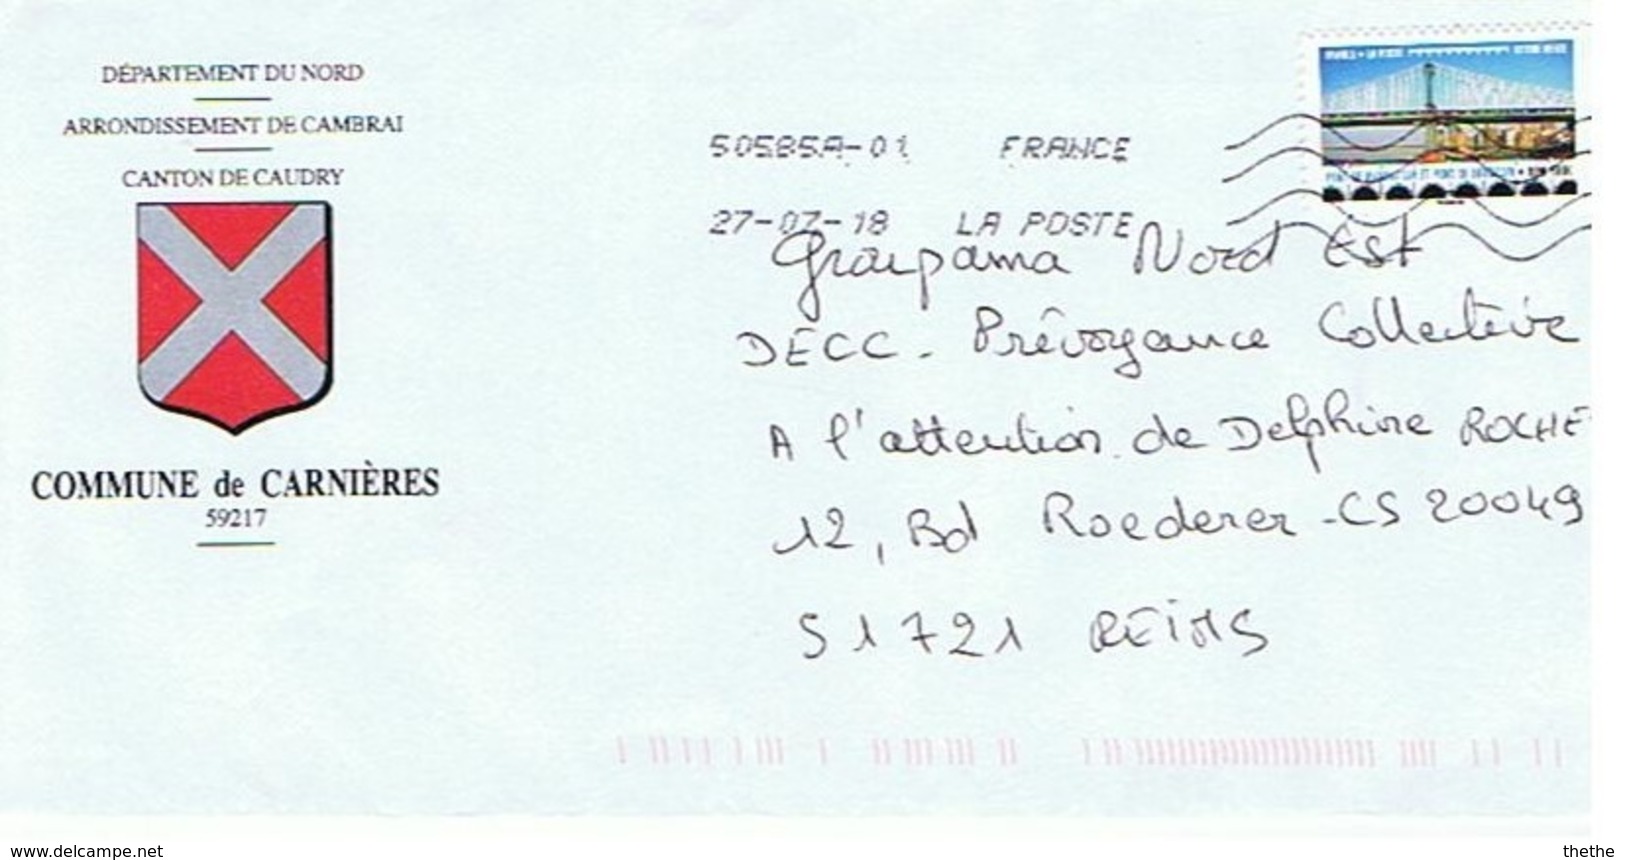 DÉPARTEMENT DU NORD
ARRONDISSEMENT DE CAMBRAI
CANTON DE CAUDRY
COMMUNE de CARNIÈRES
59217
50585A-01 FRANCE
27-07-18 LA POSTE
Groupama Nord Est
DECC - Prévoyance Collective
A l'attention de Delphine ROCHE
12, Bd Roederer - CS 20049
51721 REIMS
www.delcampe.net
thethe